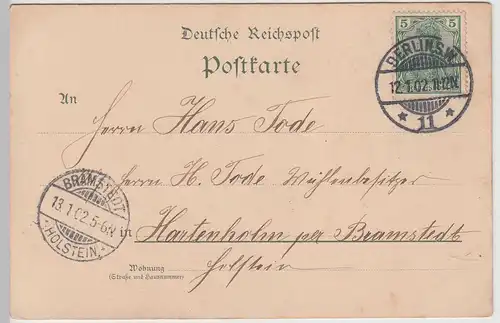 Deutsche Reichspost
Postkarte
5 5
BERLIN SW
12.1.02. 11-12N.
* 11 *
An
Herrn Hans Tode
Herrn H. Tode Mühlenbesitzer
BRAMSTEDT
13.1.02.5-6N
HOLSTEIN
in Hartenholm per Bramstedt
Holstein
Wohnung
(Straße und Hausnummer)